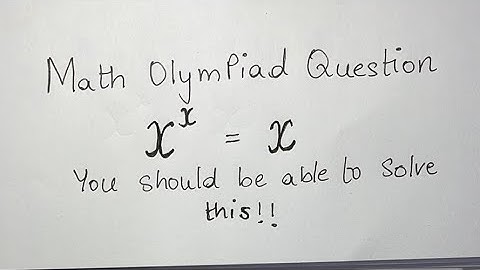 Math Olympiad Question
x^x = x
You should be able to solve
this!!